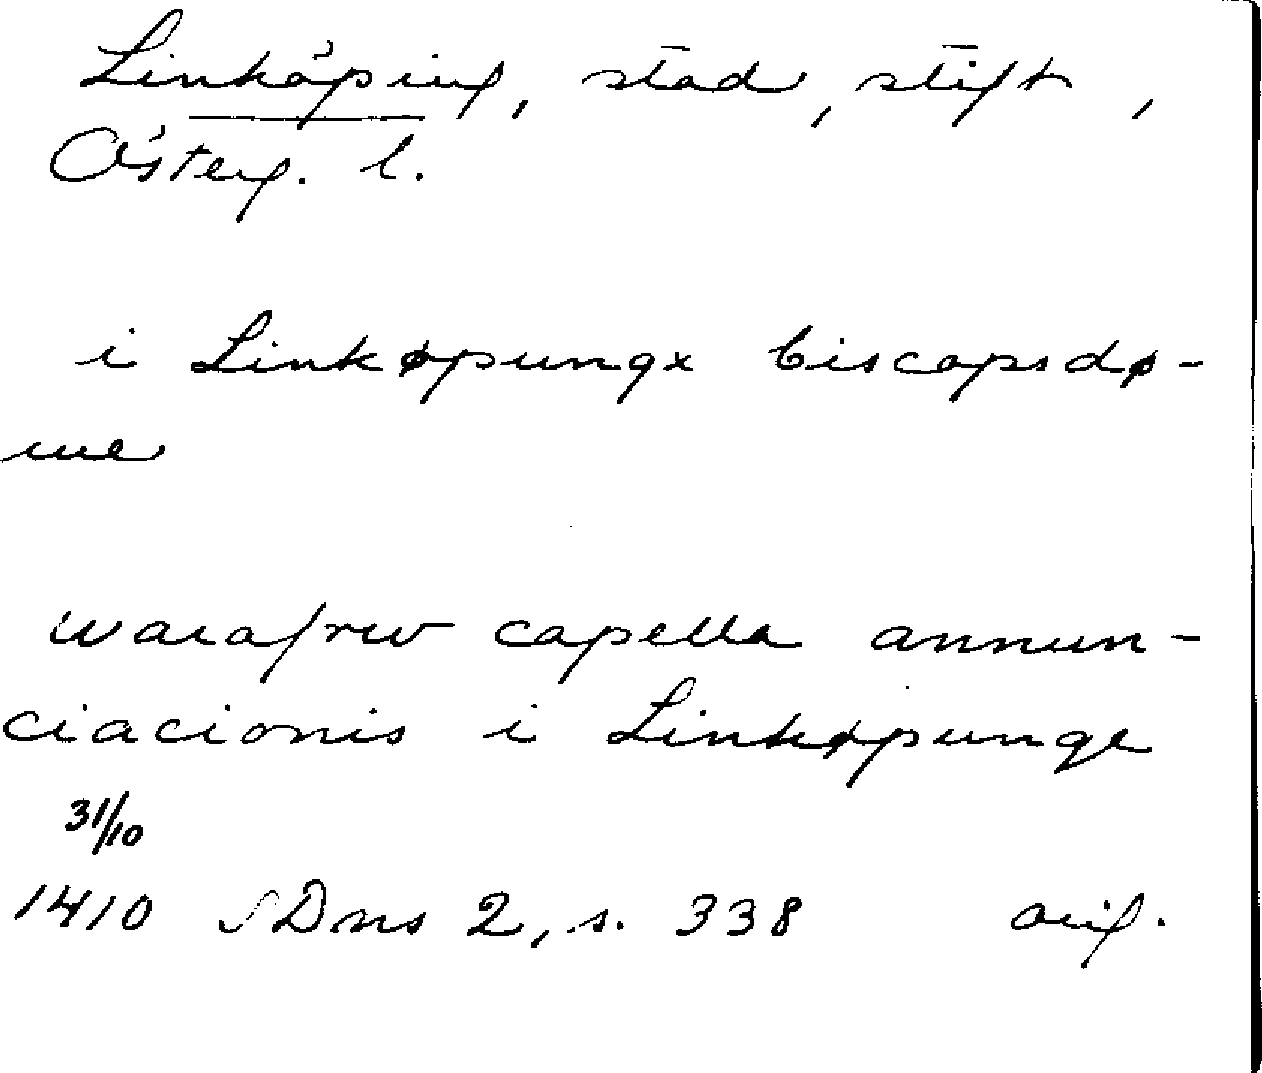 Linköping, stad, stift,
Österg. l.
i Linkøpungx biscopsdø-
me
wara frw capella annun-
ciacionis i Linkøpunge
31/10
1410 SDns 2, s. 338 orig.